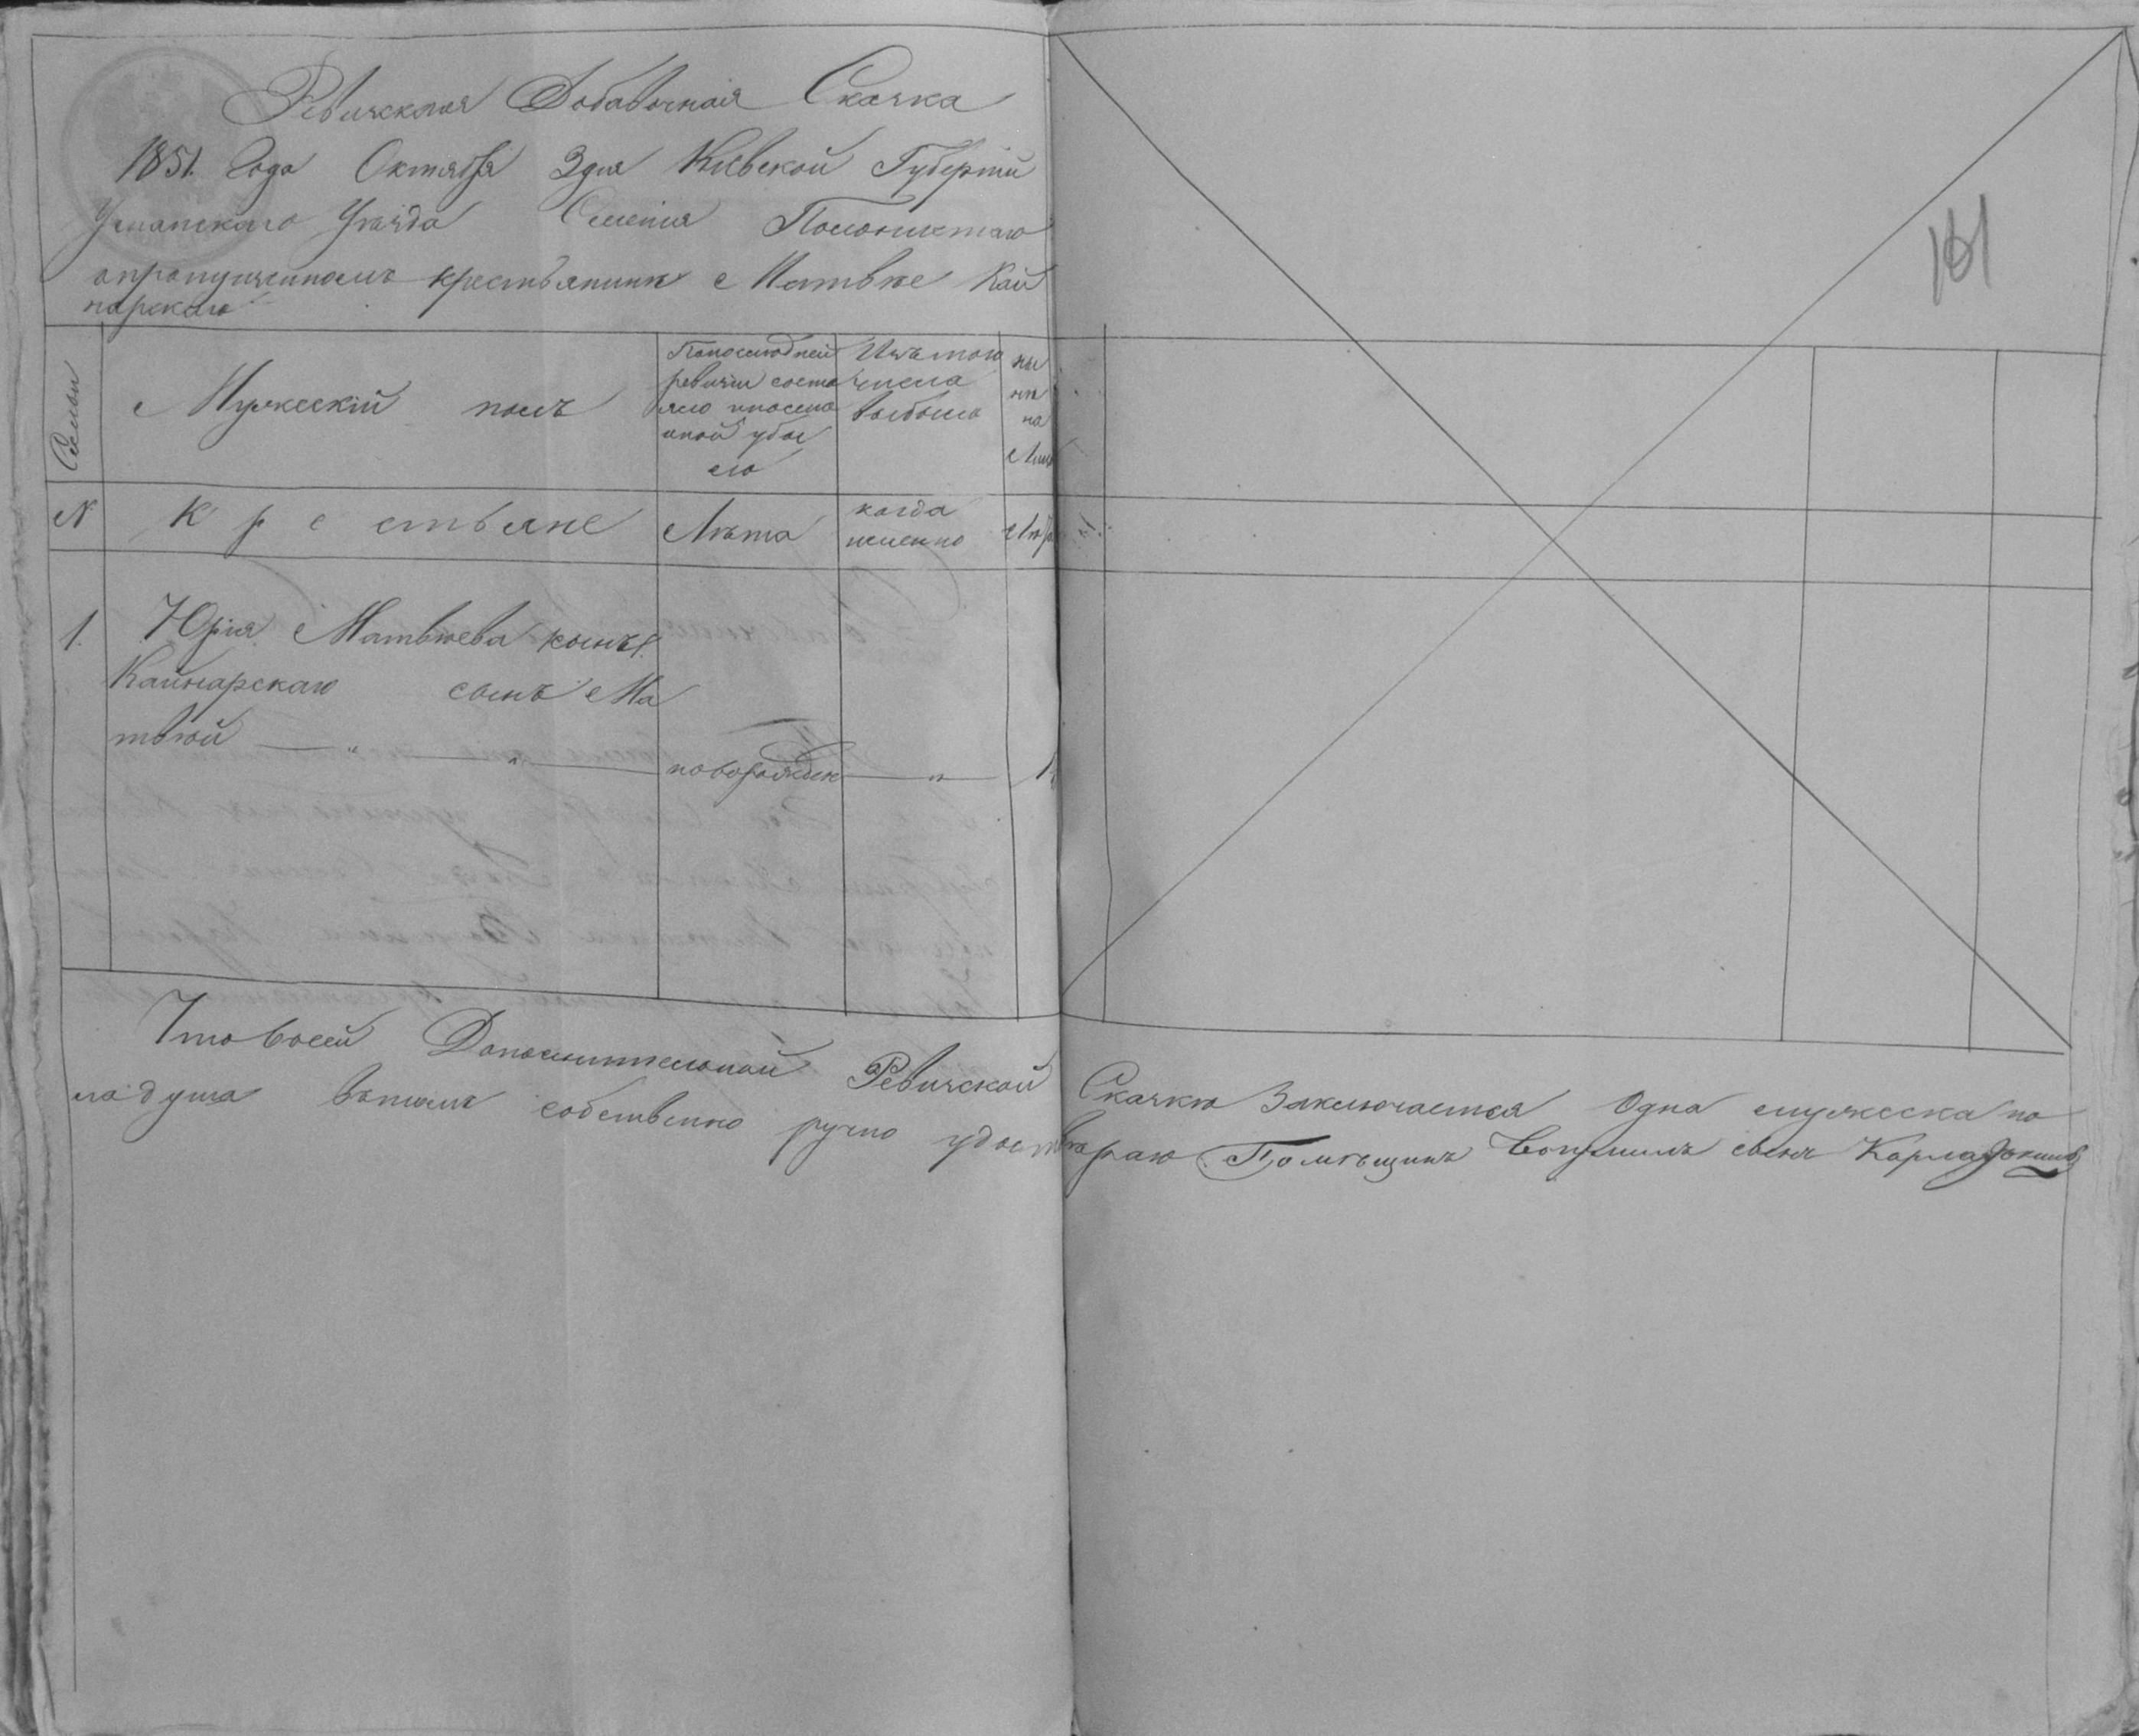 Ревижская Добавочная Скаска
1851. Года Октября 3 дня Киевской Губерніи
Уманского Уѣзда Селенія
о пропущенномъ крестьянинѣ Матвѣе Кай
нарскаго
161
Семьи
Мужескій полъ
По последней
ревизіи состо
яло и после
оной убы
ло
Изъ того
числа
выбыло
ны
нѣ
на
лицо
№
Крестьяне
Лѣта
когда
именно
Лѣта
1.
Юрія Матвѣева
Кайнарскаго сынъ Ма
твѣй — " — " — новорожден — " — 1
Что в сей Дополнительной Ревизской Скаскѣ Заключается Одна мужеска по
ла душа въ томъ собственно ручно удостоверяю Помѣщикъ сынъ Карла